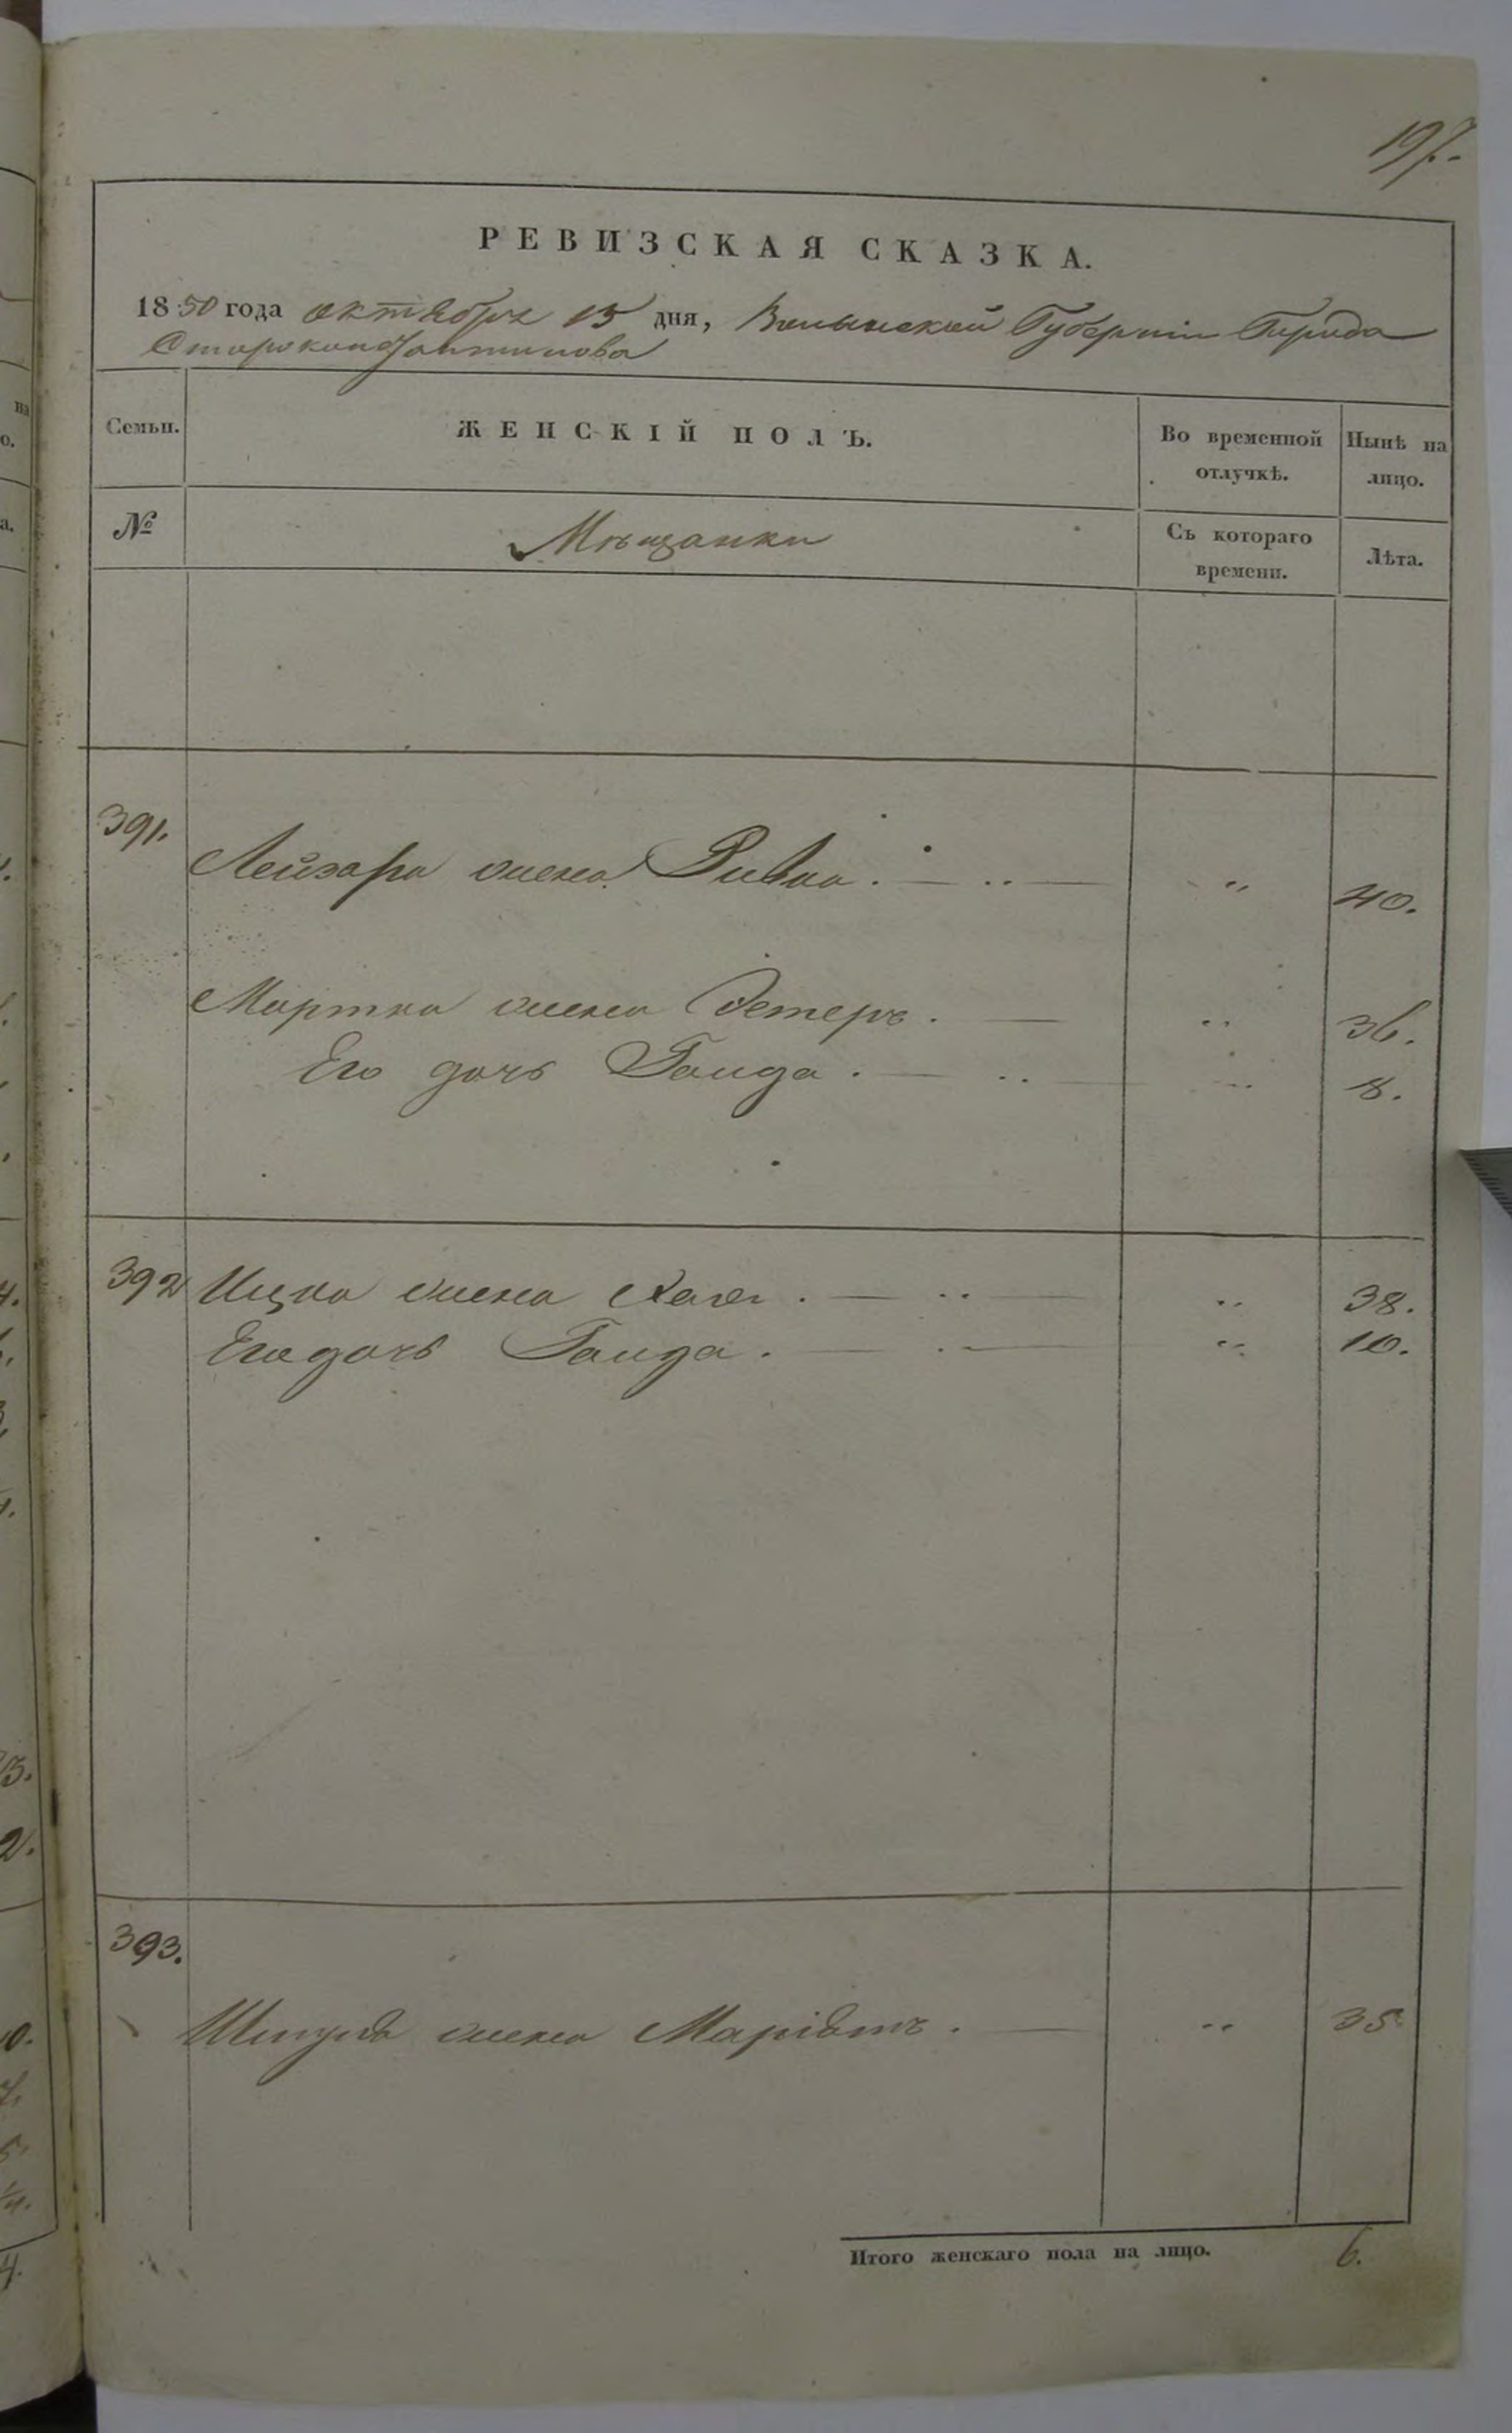 197.
РЕВИЗСКАЯ СКАЗКА.
1850 года октября 15 дня, Волынской Губерніи Города
Староконстантинова
Семьи. ЖЕНСКІЙ ПОЛЪ. Во временной отлучкѣ. Нынѣ на лицо.
№ Мѣщанки Съ котораго времени. Лѣта.
391.
Лейзара жена Ривка. — „ — „ 40.
Мортка жена Эстеръ. — „ 36.
Его дочь Гоида. — „ — „ 8.
392 Ицка жена Хая. — „ — „ 38.
Его дочь Гоида. — „ — „ 10.
393.
жена Маріямъ. — „ 35
Итого женскаго пола на лицо. 6.